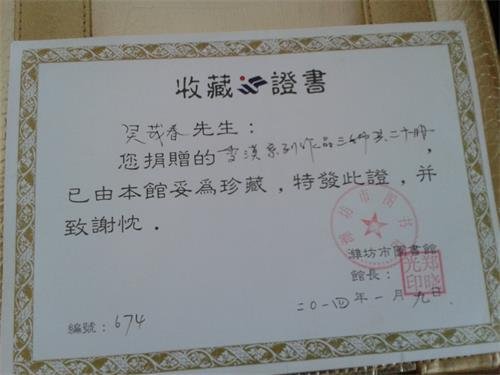 收藏 證書
吴茂春 先生：
您捐贈的 系列作品三 共二十册，
已由本館妥爲珍藏，特發此證，并
致謝忱．
潍坊市图书
濰坊市圖書館
館長：
郑晓光印
二〇一四年一月九日
編號：674